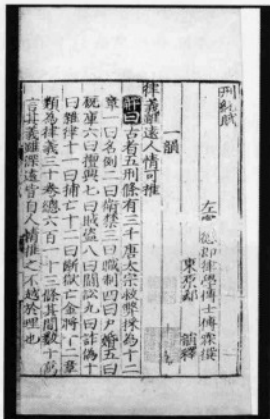 刑統賦
左宣德郎律學博士傅霖撰
東原郄□韻釋
一韻
律義雖遠人情可推
解曰古者五刑條有三千唐太宗救弊採為十二
章一曰名例二曰衛禁三曰職制四曰戶婚五曰
廐庫六曰擅興七曰賊盜八曰鬬訟九曰詐偽十
曰雜律十一曰捕亡十二曰斷獄亡金將十二章
類為律義三十卷總六百十三條其間數十萬
言其義雖深遠皆自人情推之不越於理也